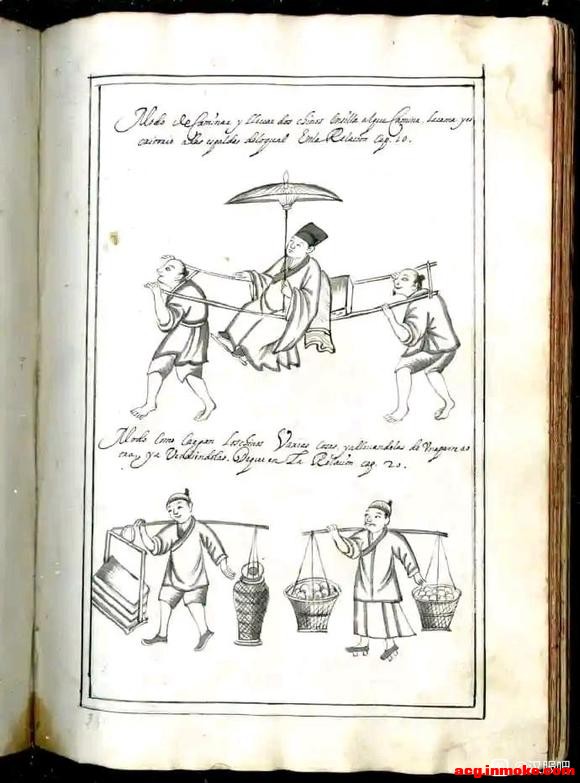 Modo de Caminar y llevar dos chinos En silla al que Camina, la cama, y es
critorio a las espaldas de lo qual En la Relacion cap. 10.
Modo Como Cargan Los chinos Varias Cosas, ya llevandolas de Una parte a o
tra, ya Vendiendolas. De que en La Relacion cap. 20.
汉服吧
acg.inmoke.com